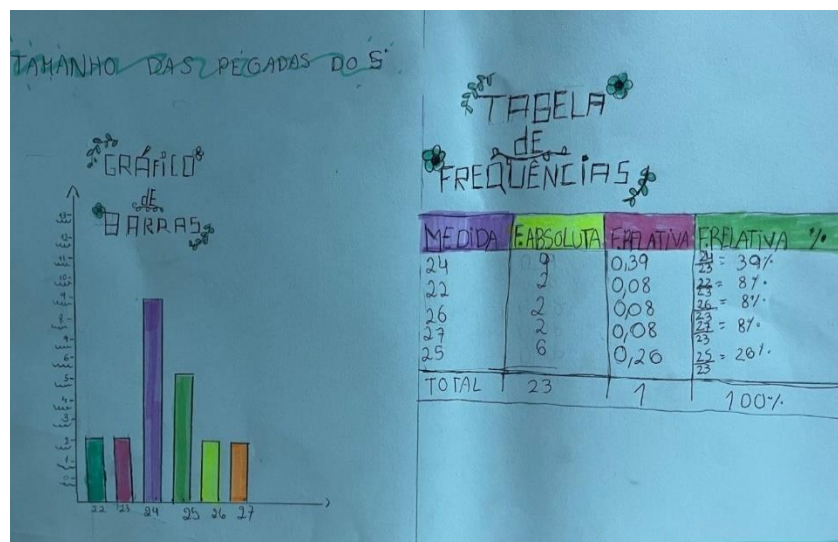 TAMANHO DAS PEGADAS DO 5°
GRÁFICO
dE
BARRAS
22 23 24 25 26 27
TABELA
dE
FREQUÊNCIAS
MEDIDA F.ABSOLUTA F.RELATIVA F.RELATIVA %
24 9 0,39 = 39%
22 2 0,08 = 8%
26 2 0,08 26/23 = 8%
27 2 0,08 27/23 = 8%
25 6 0,26 25/23 = 26%
TOTAL 23 1 100%